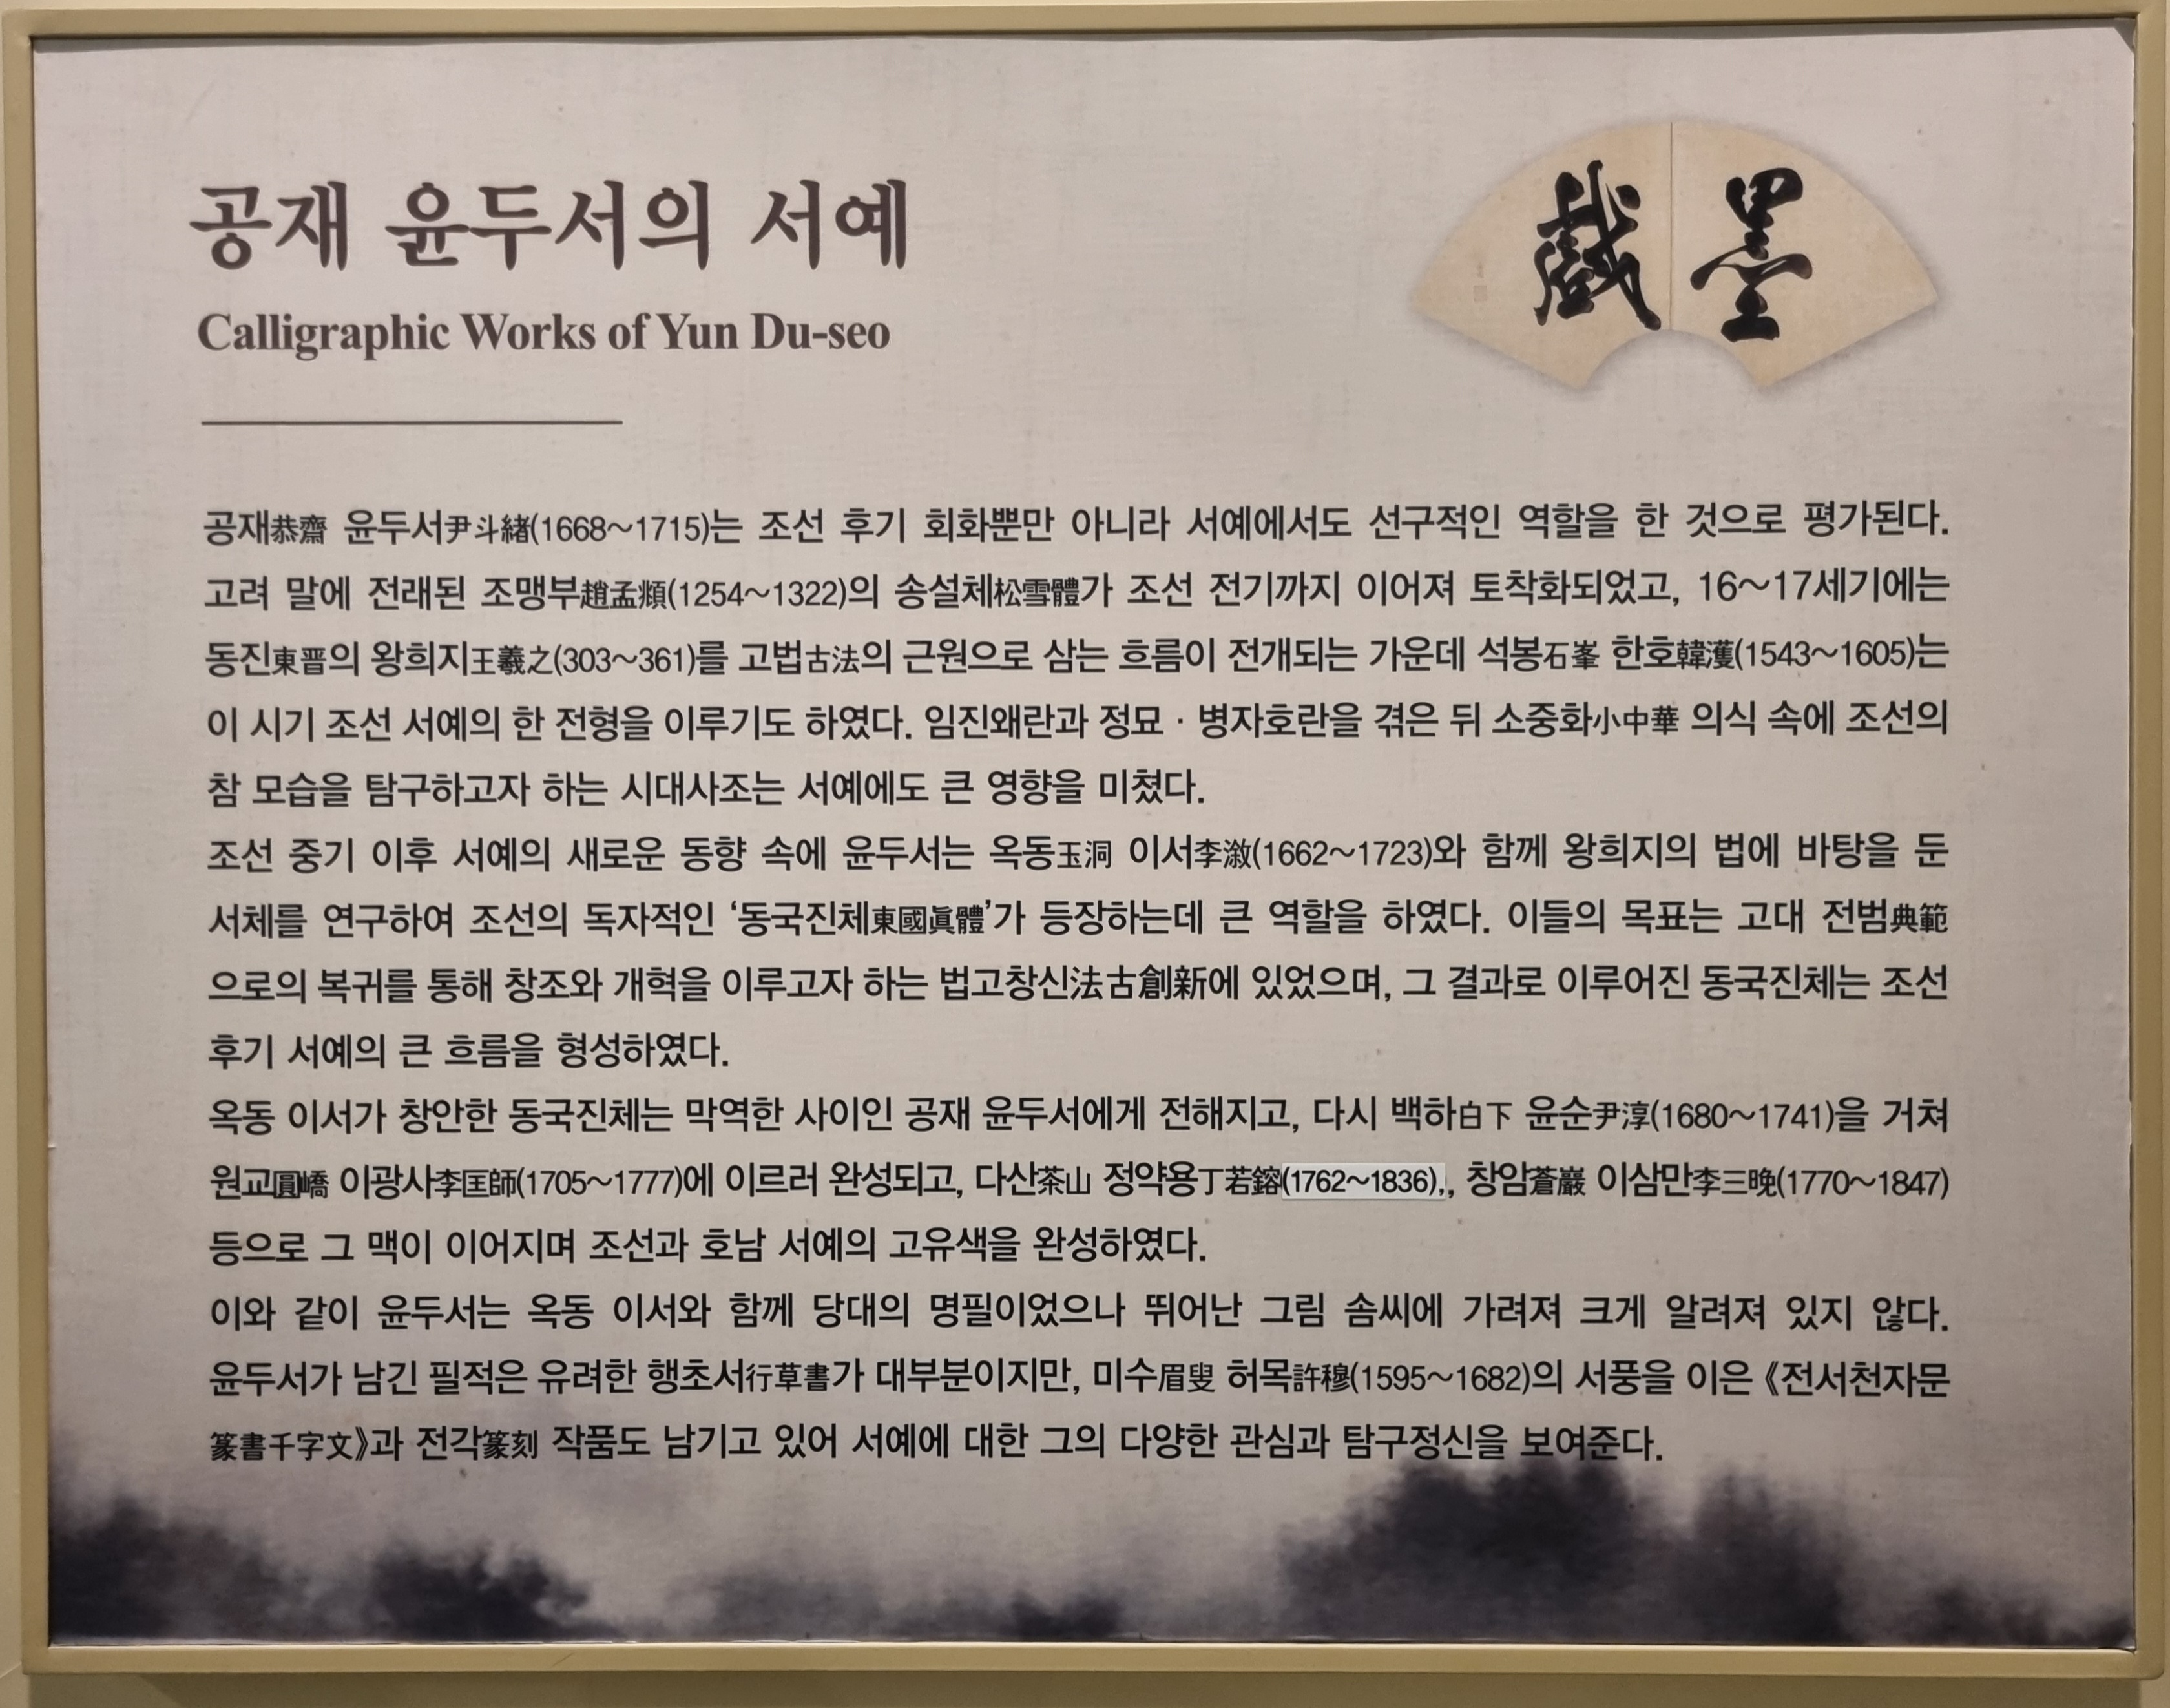 공재 윤두서의 서예
Calligraphic Works of Yun Du-seo
墨戱
공재恭齋 윤두서尹斗緖(1668~1715)는 조선 후기 회화뿐만 아니라 서예에서도 선구적인 역할을 한 것으로 평가된다.
고려 말에 전래된 조맹부趙孟頫(1254~1322)의 송설체松雪體가 조선 전기까지 이어져 토착화되었고, 16~17세기에는
동진東晋의 왕희지王羲之(303~361)를 고법古法의 근원으로 삼는 흐름이 전개되는 가운데 석봉石峯 한호韓濩(1543~1605)는
이 시기 조선 서예의 한 전형을 이루기도 하였다. 임진왜란과 정묘 · 병자호란을 겪은 뒤 소중화小中華 의식 속에 조선의
참 모습을 탐구하고자 하는 시대사조는 서예에도 큰 영향을 미쳤다.
조선 중기 이후 서예의 새로운 동향 속에 윤두서는 옥동玉洞 이서李漵(1662~1723)와 함께 왕희지의 법에 바탕을 둔
서체를 연구하여 조선의 독자적인 ‘동국진체東國眞體’가 등장하는데 큰 역할을 하였다. 이들의 목표는 고대 전범典範
으로의 복귀를 통해 창조와 개혁을 이루고자 하는 법고창신法古創新에 있었으며, 그 결과로 이루어진 동국진체는 조선
후기 서예의 큰 흐름을 형성하였다.
옥동 이서가 창안한 동국진체는 막역한 사이인 공재 윤두서에게 전해지고, 다시 백하白下 윤순尹淳(1680~1741)을 거쳐
원교圓嶠 이광사李匡師(1705~1777)에 이르러 완성되고, 다산茶山 정약용丁若鎔(1762~1836),, 창암蒼巖 이삼만李三晩(1770~1847)
등으로 그 맥이 이어지며 조선과 호남 서예의 고유색을 완성하였다.
이와 같이 윤두서는 옥동 이서와 함께 당대의 명필이었으나 뛰어난 그림 솜씨에 가려져 크게 알려져 있지 않다.
윤두서가 남긴 필적은 유려한 행초서行草書가 대부분이지만, 미수眉叟 허목許穆(1595~1682)의 서풍을 이은 《전서천자문
篆書千字文》과 전각篆刻 작품도 남기고 있어 서예에 대한 그의 다양한 관심과 탐구정신을 보여준다.